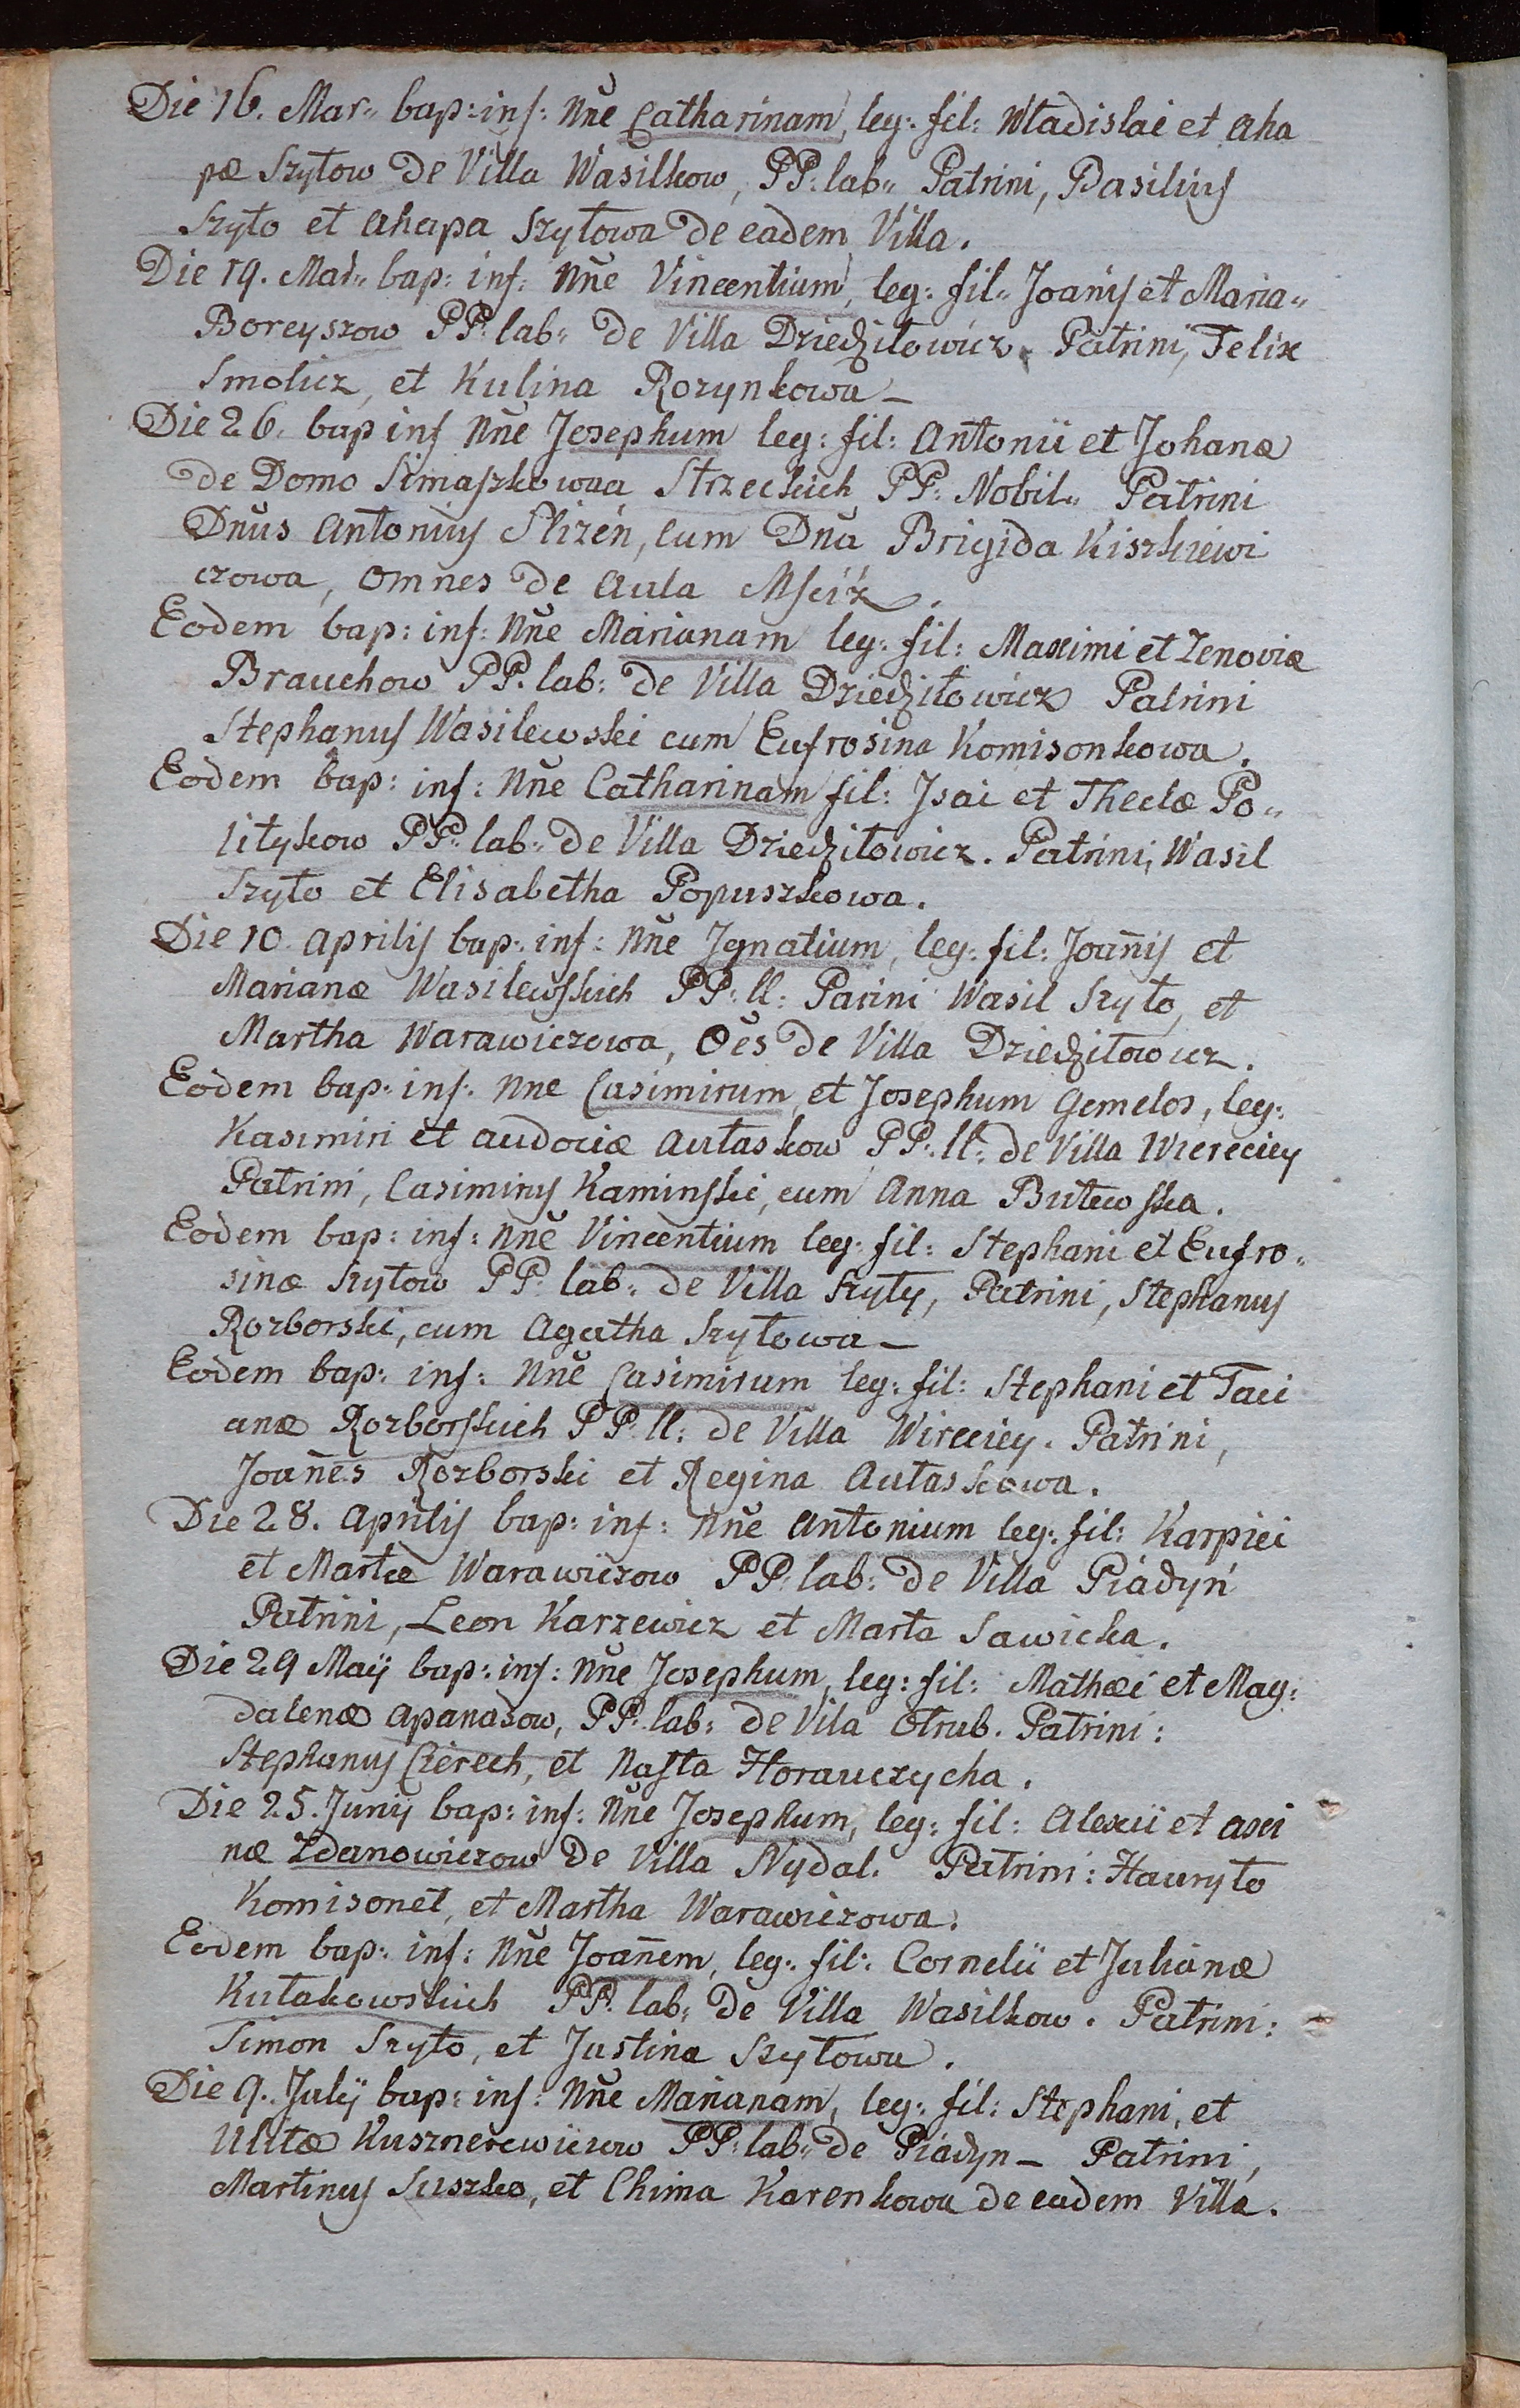 Die 16. Mar„ bap: inf: Nñe Catharinam, leg: fil: Władislai et Aha
pæ Szytow de Villa Wasilkow, PP: lab„ Patrini, Basilius
Szyto et Ahapa Szytowa de eadem Villa.
Die 19. Mar„ bap: inf: Nñe Vincentium, leg: fil„ Joanis et Maria„
Boreyszow PP: lab„ de Villa Dziedziłowicz. Patrini, Felix
Smolicz, et Kulina Rozynkowa –
Die 26. bap inf Nñe Josephum leg: fil: Antonii et Johanæ
de Domo Simaszkowna Strzeckich PP: Nobil„ Patrini
Dnus Antonius Slizeń, cum Dna Brigida Kiszkiewi
czowa, omnes de Aula Mściż.
Eodem bap: inf: Nñe Marianam leg: fil: Maximi et Zenoviæ
Brauchow PP: lab: de Villa Dziedziłowicz Patrini
Stephanus Wasilewski cum Eufrosina Komisonkowa.
Eodem bap: inf: Nñe Catharinam fil: Isai et Theclæ Po„
litykow PP: lab„ de Villa Dziedziłowicz. Patrini, Wasil
Szyto et Elisabetha Popuszkowa.
Die 10. Aprilis bap: inf: Nñe Ignatium, leg: fil: Joañis et
Marianæ Wasilewskich PP: ll: Parini Wasil Szyto, et
Martha Warawiczowa, Oẽs de Villa Dziedziłowicz.
Eodem bap: inf: Nne Casimirum, et Josephum Gemelos, leg:
Kasimiri et Audociæ Autaskow PP: ll: de Villa Wiereciey
Patrini, Casimirus Kaminski, cum Anna Butewska.
Eodem bap: inf: Nñe Vincentium leg: fil: Stephani et Eufro„
sinæ Szytow PP: lab: de Villa Szyty, Patrini, Stephanus
Rozborski, cum Agatha Szytowa –
Eodem bap: inf: Nñe Casimirum leg: fil: Stephani et Taci
anæ Rozborskich PP: ll: de Villa Wireciey. Patrini,
Joañes Rozborski et Regina Autaskowa.
Die 28. Aprilis bap: inf: Nñe Antonium leg: fil: Karpiei
et Martæ Warawiczow PP: lab: de Villa Piadyń
Patrini, Leon Karzewicz et Marta Sawicka.
Die 29 Maij bap: inf: Nñe Josephum, leg: fil: Mathæi et Mag:
dalenæ Apanasow, PP: lab: de Vila Otrub. Patrini:
Stephanus Czerech, et Nasta Horawczycha.
Die 25. Junij bap: inf: Nñe Josephum, leg: fil: Alexii et Axi
næ Zdanowiczow de Villa Nydal. Patrini: Hawryło
Komisonet, et Martha Warawiczowa.
Eodem bap: inf: Nñe Joañem, leg: fil: Cornelii et Julianæ
Kutakowskich PP: lab: de Villa Wasilkow. Patrini:
Simon Szyto, et Justina Szytowa.
Die 9. Julij bap: inf: Nñe Marianam, leg: fil: Stephani, et
Ulitæ Kusznerewiczow PP: lab„ de Piadyn – Patrini,
Martinus Suszko, et Chima Karenkowa de eadem Villa.